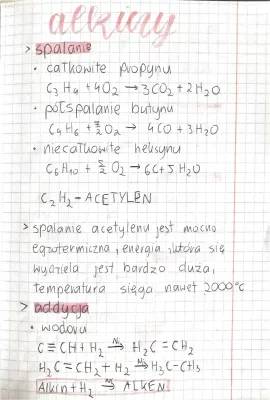 alkiny
> spalanie
• całkowite propynu
C₃H₄ + 4O₂ → 3CO₂ + 2H₂O
• półspalanie butynu
C₄H₆ + 7/2 O₂ → 4CO + 3H₂O
• niecałkowite heksynu
C₆H₁₀ + 5/2 O₂ → 6C + 5H₂O
C₂H₂ - ACETYLEN
> spalanie acetylenu jest mocno
egzotermiczna, energia, która się
wydziela jest bardzo duża,
temperatura sięga nawet 2000°C
> addycja
• wodoru
C≡CH + H₂ →Ni H₂C=CH₂
H₂C=CH₂ + H₂ →Ni H₃C-CH₃
Alkin + H₂ →Ni ALKEN